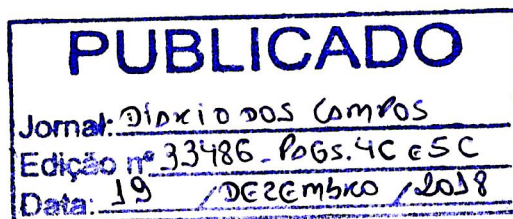 PUBLICADO
Jornal: Diário dos Campos
Edição nº 33486 - PAGs. 4C e 5C
Data: 19 / DEZEMBRO / 2018